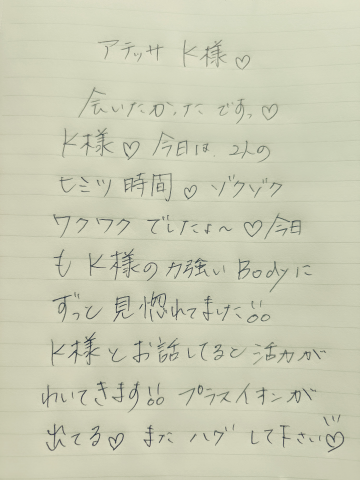 アテッサ K様♡
会いたかったです。♡
K様♡ 今日は、2人の
ヒミツ時間♡ ゾクゾク
ワクワクでしたょ〜♡今日
も K様の力強い Bodyに
ずっと見惚れてました!!
K様とお話してると活力が
わいてきます!! プラスイオンが
出てる♡ また ハグ して下さい♡